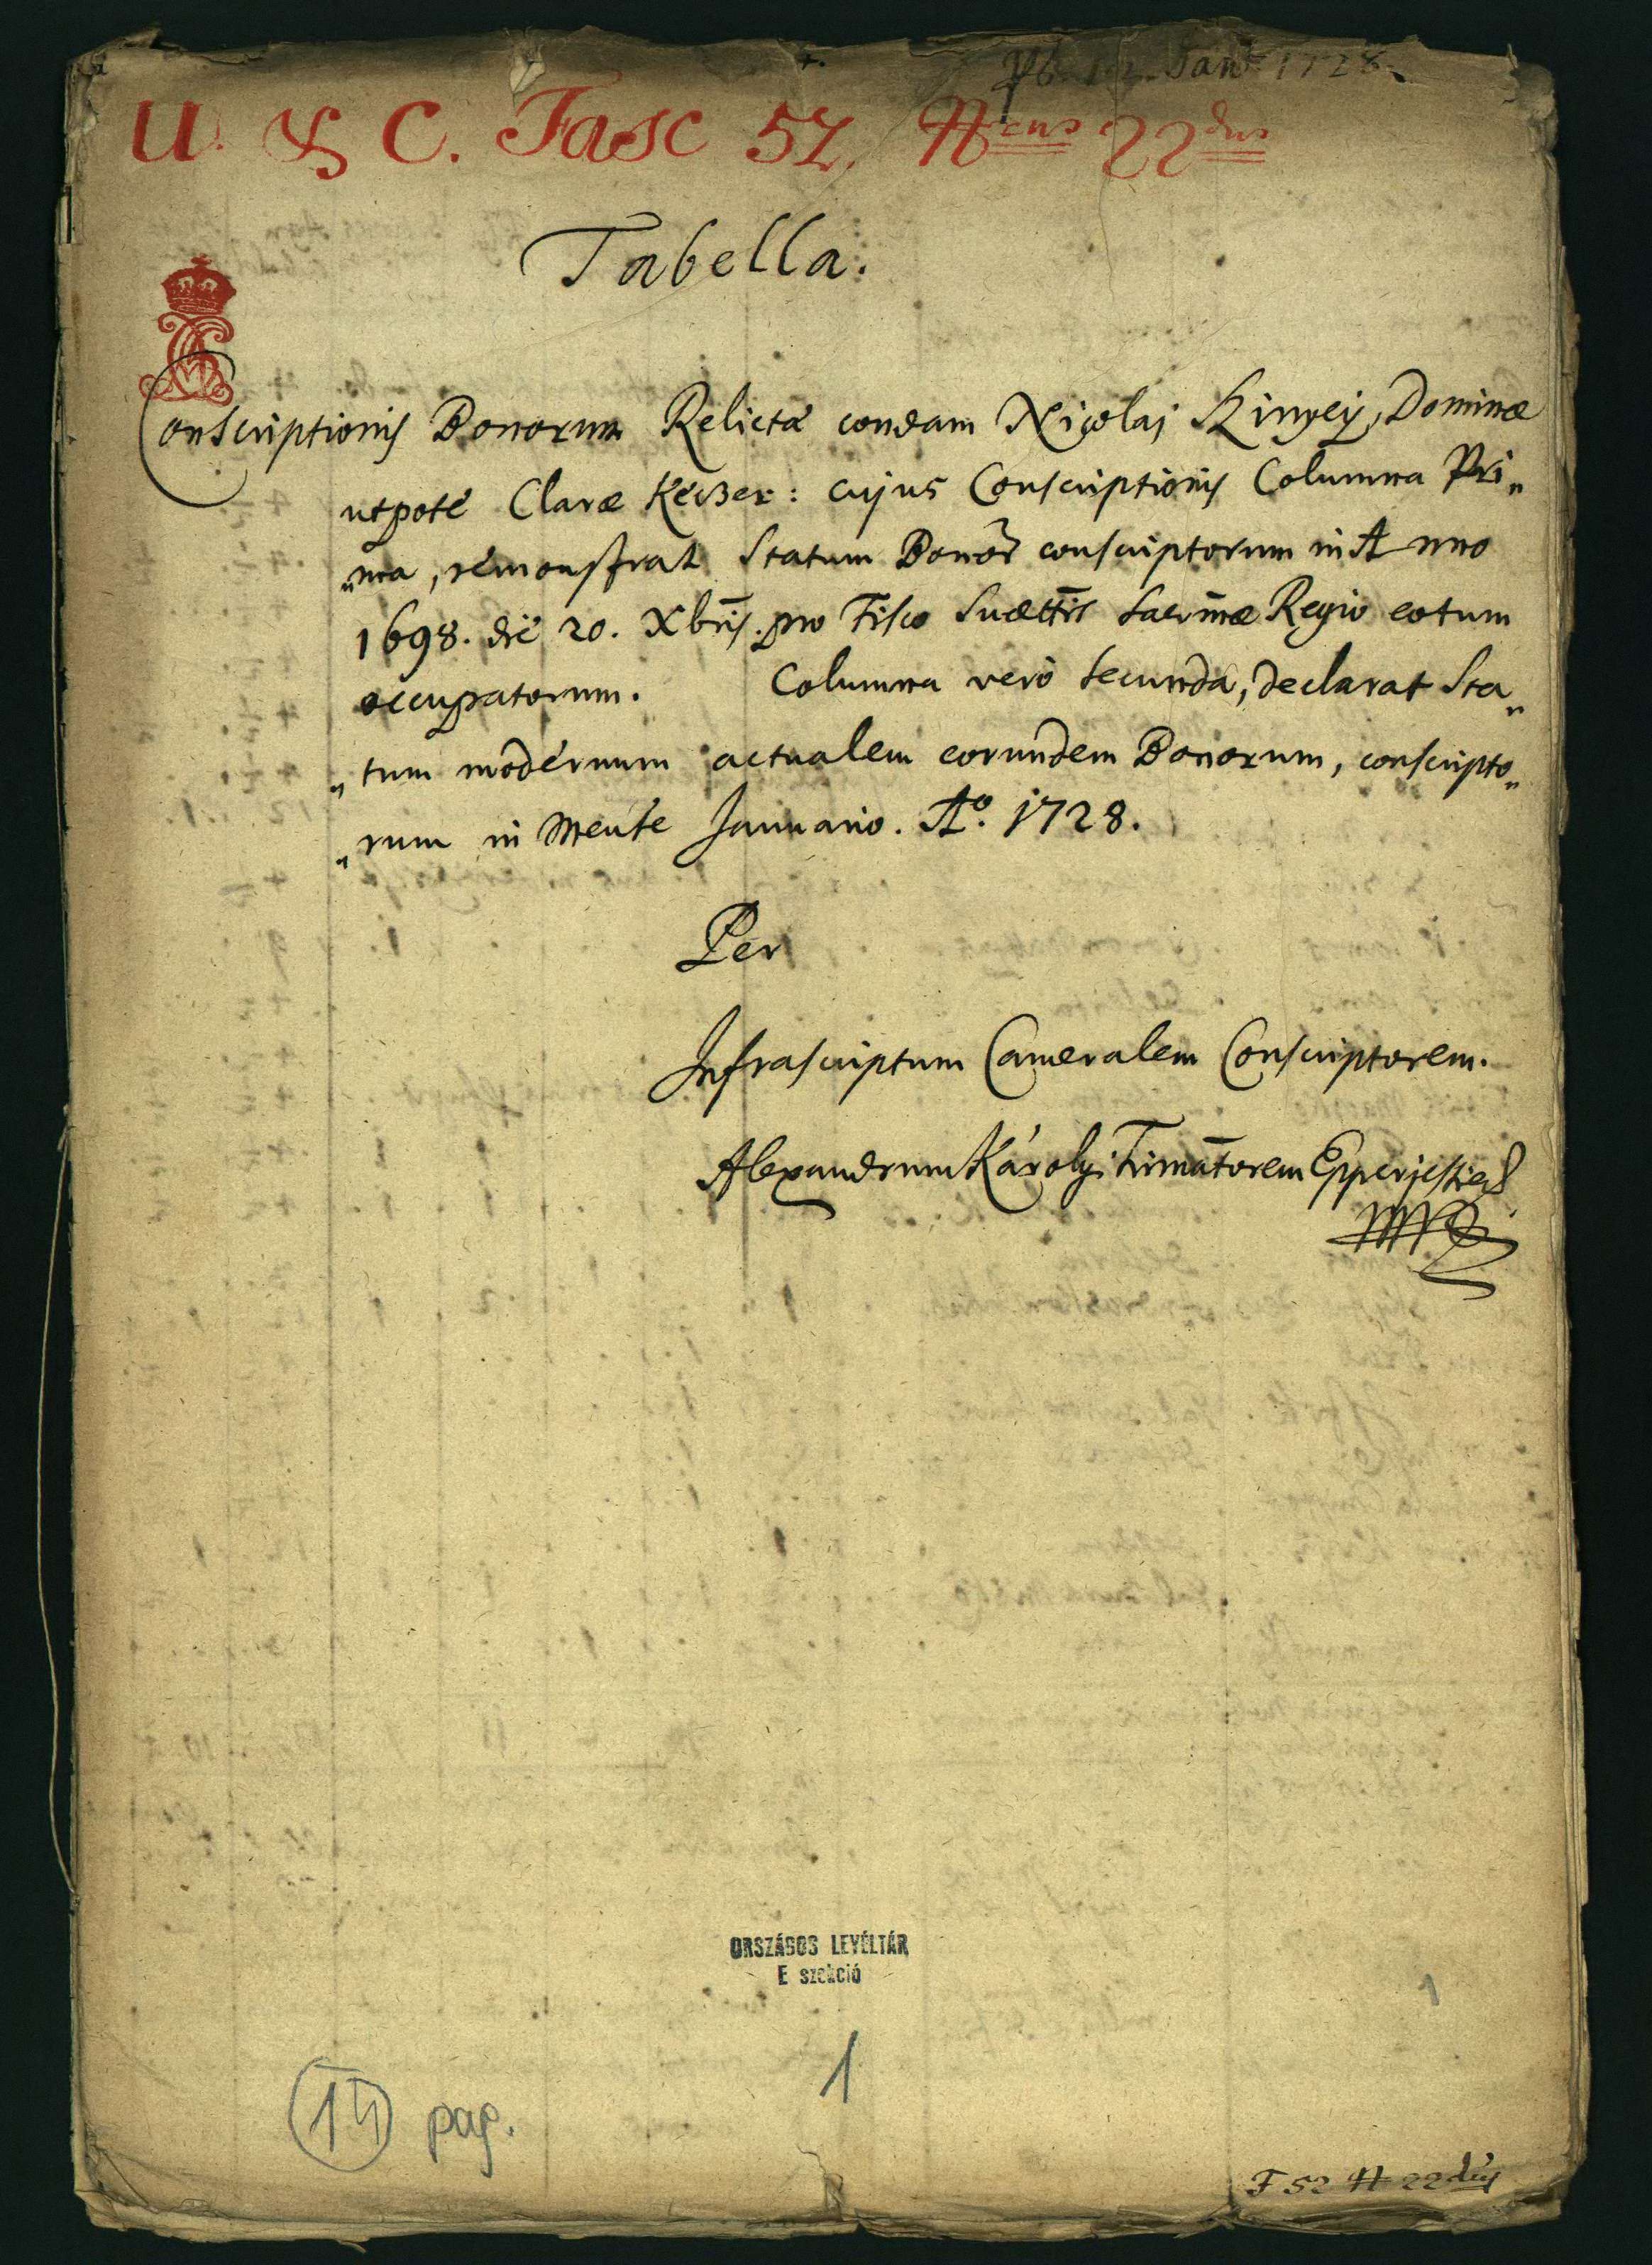 Jan 1728.
U. & C. Fasc 52. Nrus 22dus
Tabella.
Conscriptionis Bonorum Relictæ condam Nicolai Szinyei, Dominæ
utpote Claræ Keczer: cujus Conscriptionis Columna Pri„
„ma, remonstrat Statum Bonor̄ conscriptorum in Anno
1698. die 20. Xbris. pro Fisco Suættis Sacrmæ Regio eotum
occupatorum. Columna verò Secunda, declarat Sta„
„tum modernum actualem eorundem Bonorum, conscripto„
„rum in Mense Januario. Ao. 1728.
Per
Infrascriptum Cameralem Conscriptorem.
Alexandrum Károlyi
ORSZÁGOS LEVÉLTÁR
E szekció
1
1
14 pag.
F 52 N 22dus